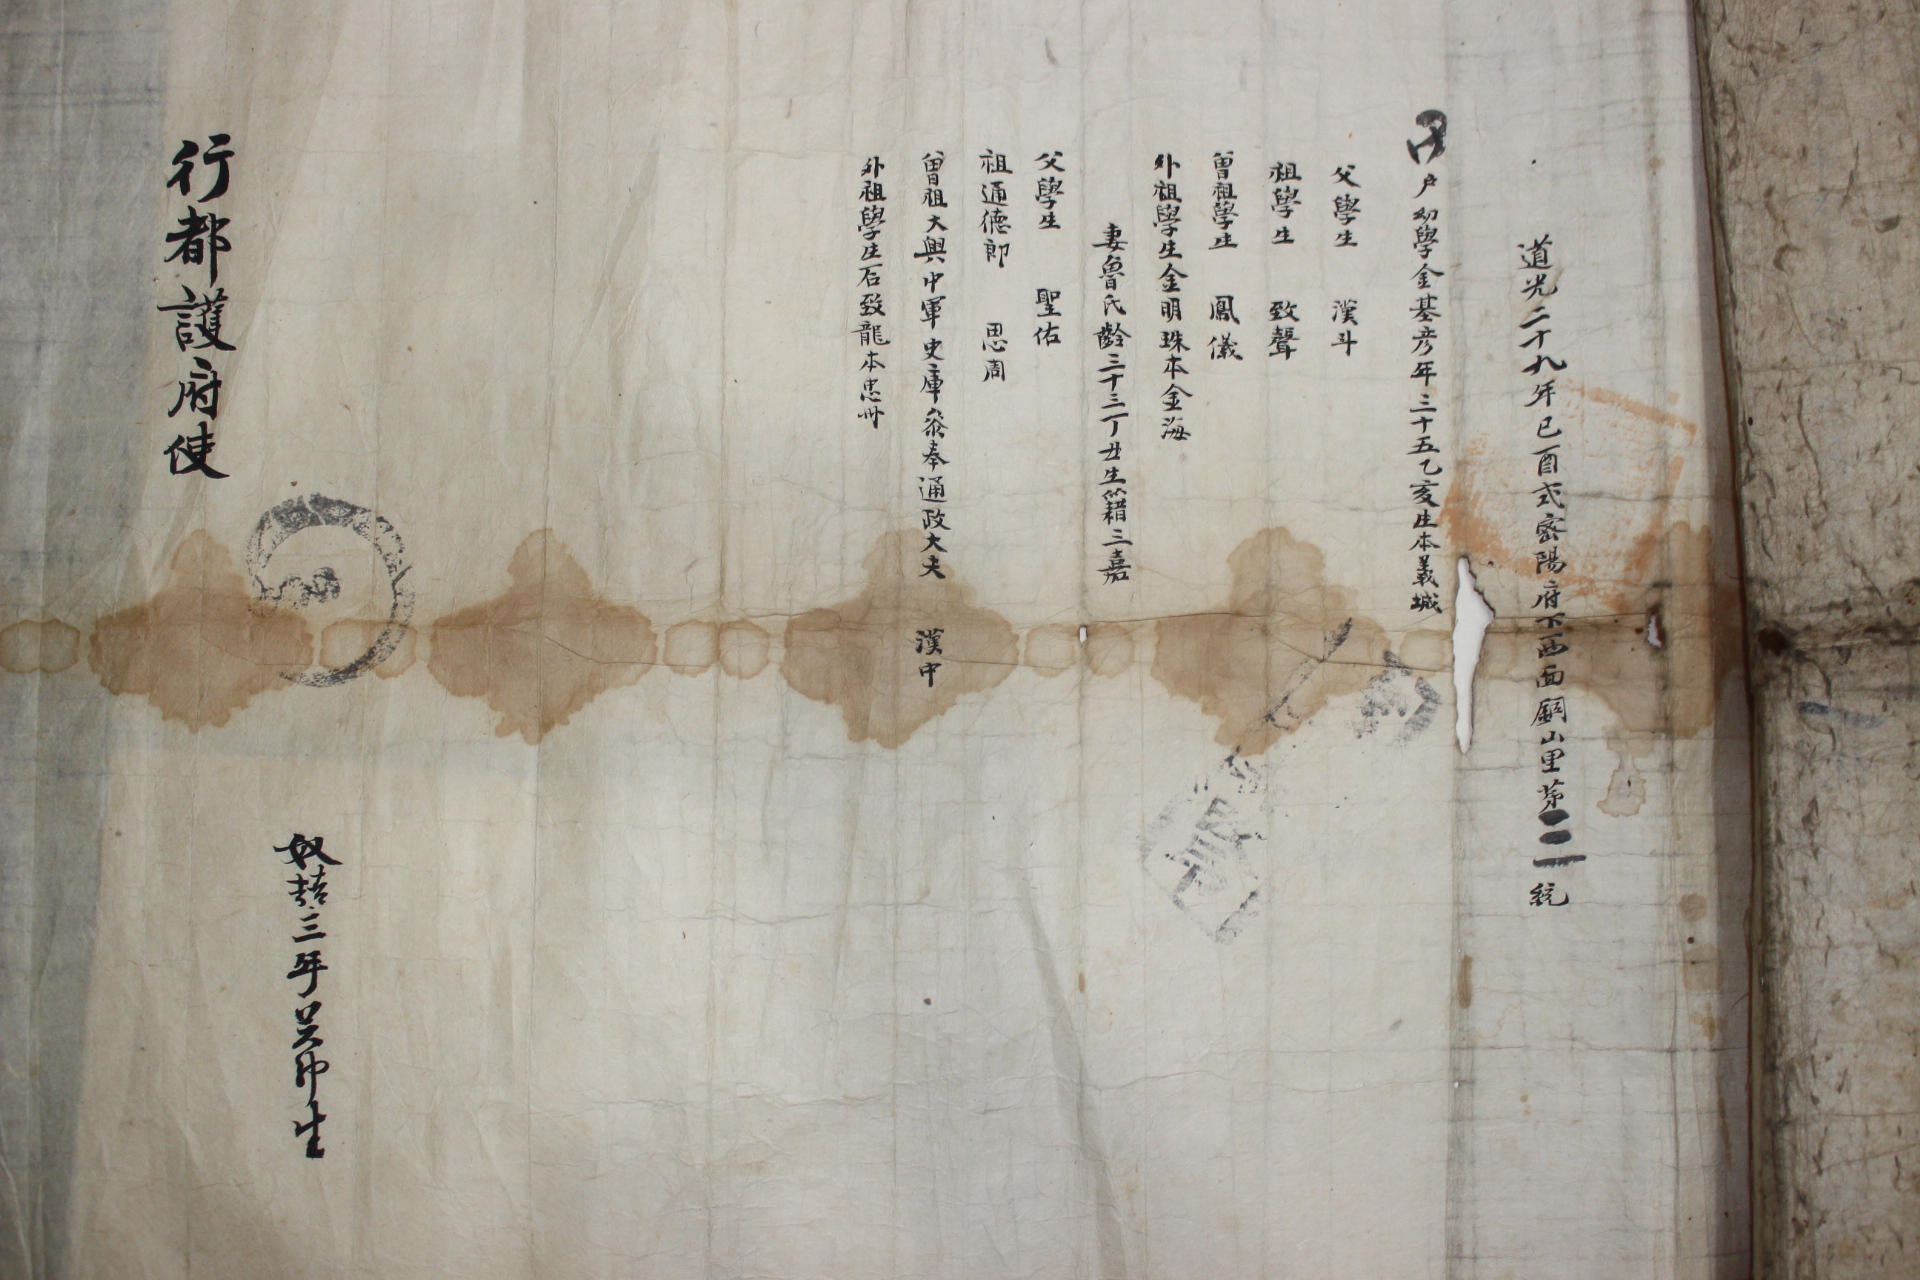 道光二十九年己酉式密陽府下西面銅山里第二統
戶幼學金基彦年三十五乙亥生本義城
父學生 漢斗
祖學生 致聲
曾祖學生 鳳儀
外祖學生金明珠本金海
妻魯氏齡三十三丁丑生籍三嘉
父學生 聖佑
祖通德郎 思周
曾祖大興中軍史庫參奉通政大夫 漢中
外祖學生石致龍本忠州
奴 三年 生
行都護府使